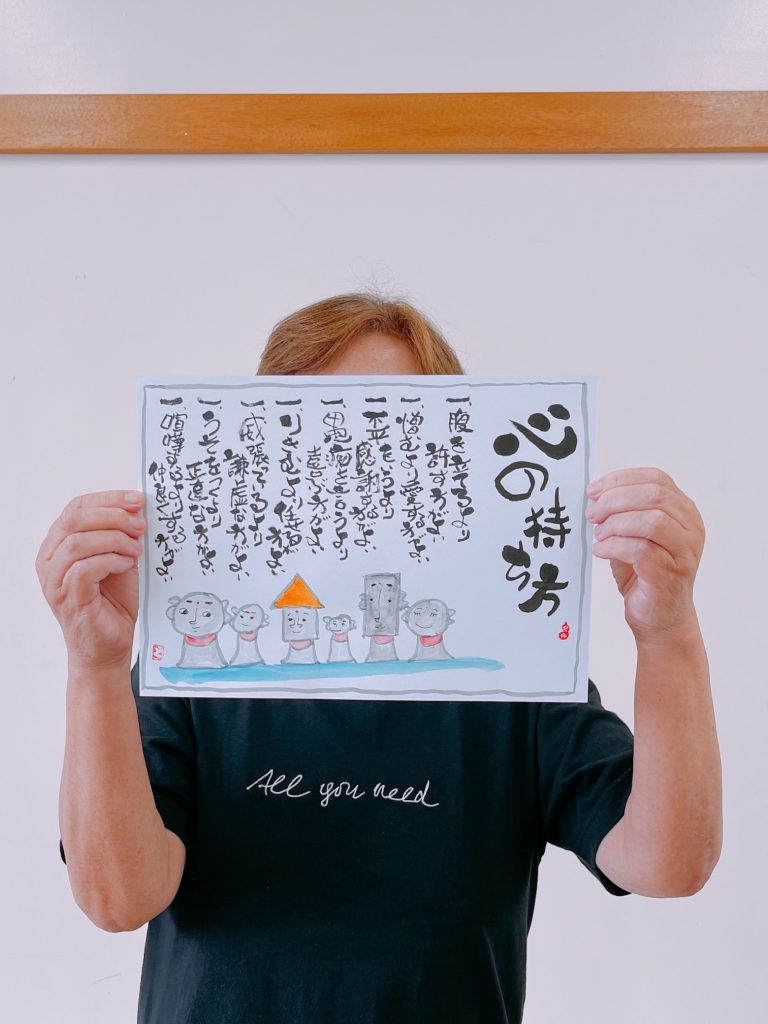 心の
持ち方
一、腹を立てるより
許す方がよい
一、憎むより愛する方がよい
一、不平をいうより
感謝する方がよい
一、愚痴を言うより
喜ぶ方がよい
一、りきむより任せる方がよい
一、威張っているより
謙虚な方がよい
一、うそをつくより
正直な方がよい
一、喧嘩するより
仲良くする方がよい
All you need